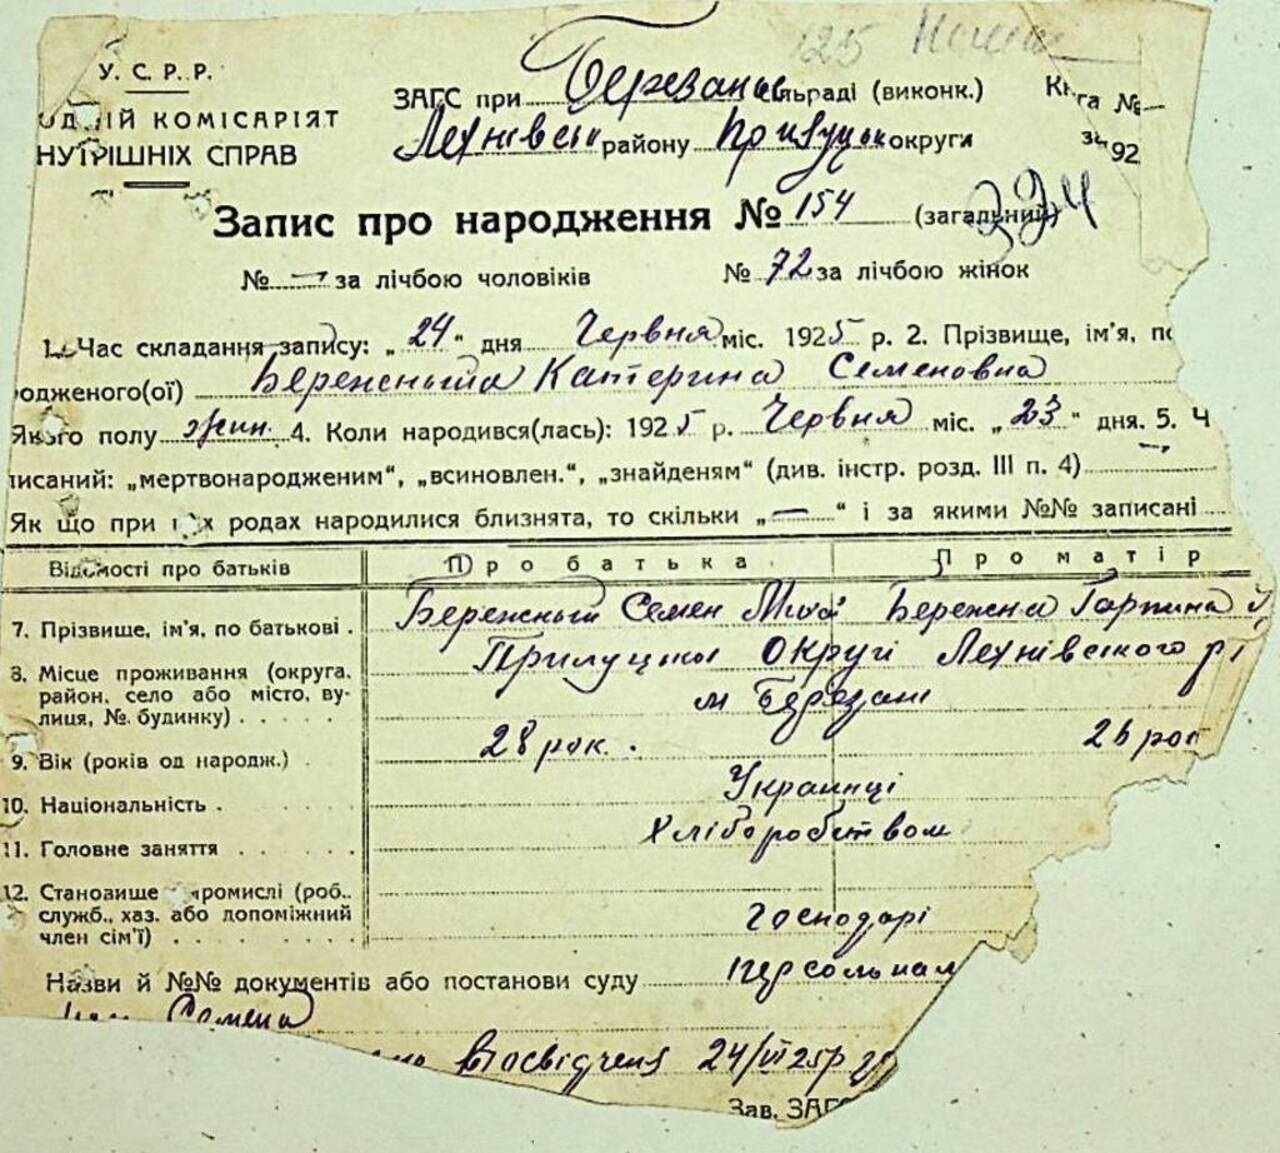 125
У. С. Р. Р.
ЗАГС при Березанс сільраді (виконк.)
Книга №—
ОДНІЙ КОМІСАРІЯТ
НУТРІШНІХ СПРАВ
Лехнівськ району Прилуцьк округи
за 92
Запис про народження № 154 (загальний)
334
№ — за лічбою чоловіків № 72 за лічбою жінок
1. Час складання запису: „24“ дня Червня міс. 1925 р. 2. Прізвище, ім'я, по
одженого(ої) Катерина Семеновна
Якого полу жин. 4. Коли народився(лась): 1925 р. Червня міс. „23“ дня. 5. Ч
писаний: „мертвонародженим“, „всиновлен.“, „знайденям“ (див. інстр. розд. III п. 4) —
Як що при цих родах народилися близнята, то скільки „—“ і за якими №№ записані
Відомості про батьків Про батька Про матір
7. Прізвище, ім'я, по батькові . Бережный Семен Бережна Гарпина
8. Місце проживання (округа, район, село або місто, вулиця, №. будинку) . . . . . Прилуцкы Округі Лехнівського р
м Березані
9. Вік (років од народж.) . 28 рок. 26 рок
10. Національність . Украинці
11. Головне заняття . . . . . Хліборобством
12. Становище в промислі (роб.,
служб., хаз. або допоміжний
член сім'ї) . . . . . . . Господарі
Назви й №№ документів або постанови суду персональном
Семена
Посвідченя 24/VI 25р
Зав. ЗАГС